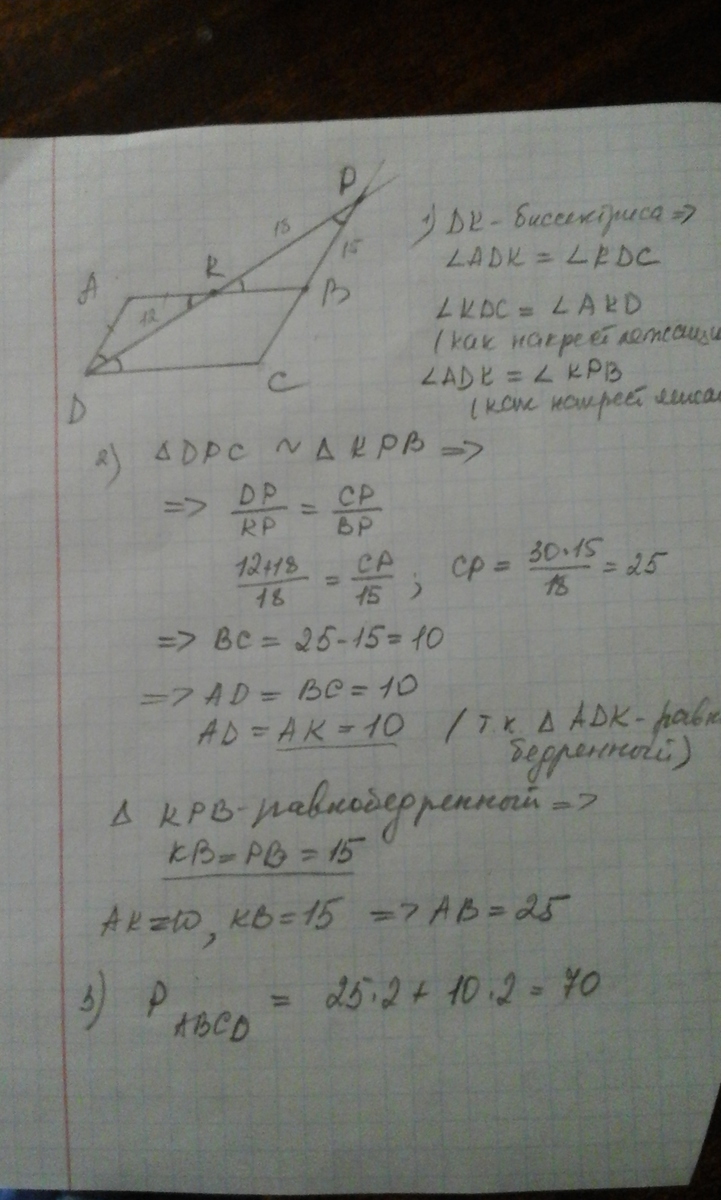 P
18
15
K
A
B
12
C
D
1) DK - биссектриса =>
∠ADK = ∠KDC
∠KDC = ∠AKD
(как накрест лежащи
∠ADK = ∠KPB
(как накрест лежа
2) △DPC ~ △KPB =>
=> DP/KP = CP/BP
12+18/18 = CP/15 ; CP = 30·15/18 = 25
=> BC = 25-15=10
=> AD = BC = 10
AD = AK = 10 (т.к. △ADK - равн
бедренный)
△ KPB - равнобедренный =>
KB = PB = 15
AK=10, KB=15 => AB = 25
3) P ABCD = 25·2 + 10·2 = 70